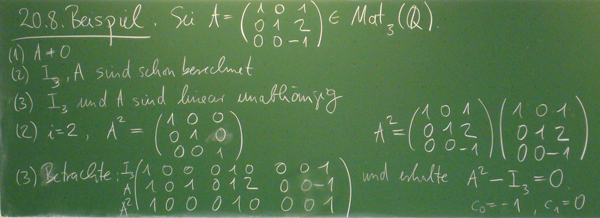 20.8. Beispiel. Sei A = (1 0 1 / 0 1 2 / 0 0 -1) ∈ Mat₃(ℚ).
(1) A ≠ 0
(2) I₃, A sind schon berechnet
(3) I₃ und A sind linear unabhängig
(2) i=2, A² = (1 0 0 / 0 1 0 / 0 0 1) A² = (1 0 1 / 0 1 2 / 0 0 -1) (1 0 1 / 0 1 2 / 0 0 -1)
(3) Betrachte: I₃ (1 0 0 0 1 0 0 0 1 / A 1 0 1 0 1 2 0 0 -1 / A² 1 0 0 0 1 0 0 0 1) und erhalte A² - I₃ = 0.
c₀ = -1, c₁ = 0